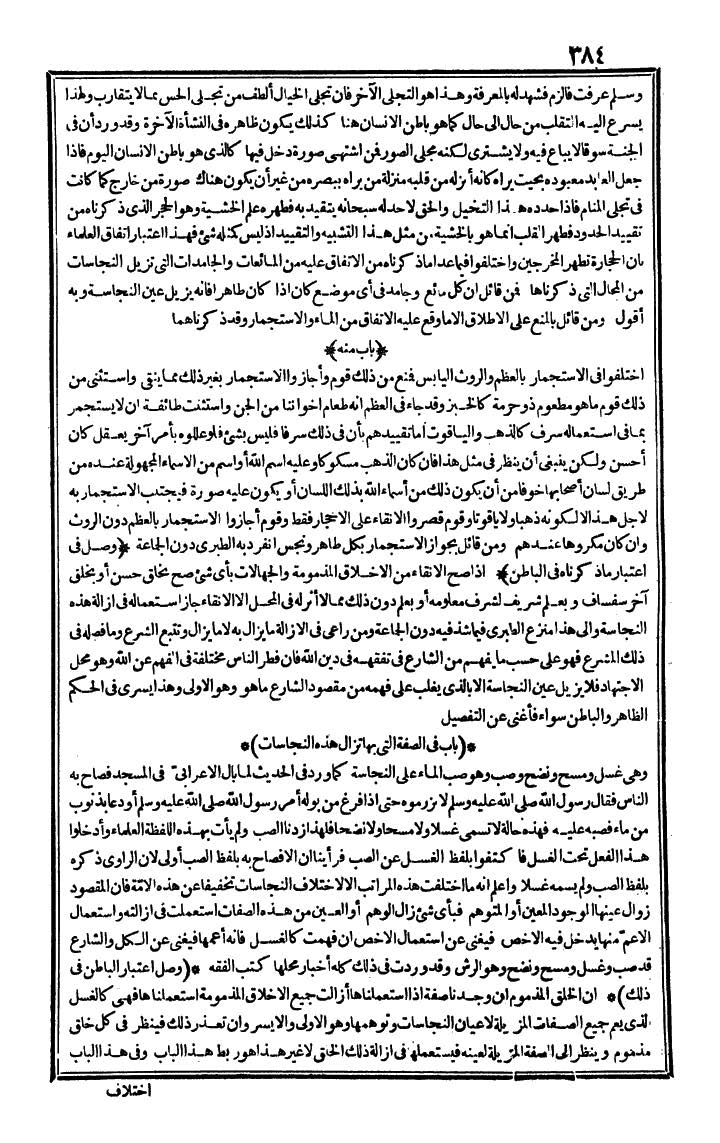 ٣٨٤
وسلم عرفت فالزم فشهد له بالمعرفة وهذا هو التجلى الآخر فان تجلى الخيال ألطف من تجلى الحس بما لا يتقارب ولهذا
يسرع اليه التقلب من حال الى حال كما هو باطن الانسان هنا كذلك يكون ظاهره فى النشأة الآخرة وقد ورد أن فى
الجنة سوقا لا يباع فيه ولا يشترى لكنه مجلى الصور فن اشتهى صورة دخل فيها كالذى هو باطن الانسان اليوم فاذا
جعل العابد معبوده بحيث يراه كانه أنزله من قلبه منزلة من يراه ببصره من غير أن يكون هناك صورة من خارج كما كانت
فى تجلى المنام فاذا حدده هذا التخيل والحق لاحد له سبحانه يتقيد به فطهره علم الخشية وهو الحجر الذى ذكرناه من
تقييد الحدود فطهر القلب انما هو بالخشية من مثل هذا التشبيه والتقييد اذ ليس كمثله شئ فهذا اعتبار اتفاق العلماء
بان الحجارة تطهر المخرجين واختلفوا فيما عدا ما ذكرناه من الاتفاق عليه من المائعات والجامدات التى تزيل النجاسات
من المحال التى ذكرناها فن قائل ان كل مائع وجامد فى أى موضع كان اذا كان طاهرا فانه يزيل عين النجاسة وبه
أقول ومن قائل بالمنع على الاطلاق الا ما وقع عليه الاتفاق من الماء والاستجمار وقد ذكرناهما
﴿باب منه﴾
اختلفوا فى الاستجمار بالعظم والروث اليابس فنع من ذلك قوم وأجازوا الاستجمار بغير ذلك مما ينقى واستثنى من
ذلك قوم ما هو مطعوم ذو حرمة كالخبز وقد جاء فى العظم انه طعام اخواننا من الجن واستثنت طائفة ان لا يستجمر
بما فى استعماله سرف كالذهب والياقوت أما تقييدهم بأن فى ذلك سرفا فليس بشئ فلو عللوه بأمر آخر يعقل كان
أحسن ولكن ينبغى أن ينظر فى مثل هذا فان كان الذهب مسكوكا وعليه اسم الله أو اسم من الاسماء المجهولة عنده من
طريق لسان أصحابها خوفا من أن يكون ذلك من أسماء الله بذلك اللسان أو يكون عليه صورة فيجتنب الاستجمار به
لاجل هذا لا لكونه ذهبا ولا ياقوتا وقوم قصروا الانقاء على الاحجار فقط وقوم أجازوا الاستجمار بالعظم دون الروث
وان كان مكروها عندهم ومن قائل بجواز الاستجمار بكل طاهر ونجس انفرد به الطبرى دون الجماعة ﴿وصل فى
اعتبار ما ذكرناه فى الباطن﴾ اذا صح الانقاء من الاخلاق المذمومة والجهالات بأى شئ صح بخلق حسن أو بخلق
آخر سفساف وبعلم شريف لشرف معلومه أو بعلم دون ذلك مما لا أثر له فى المحل الا الانقاء جاز استعماله فى ازالة هذه
النجاسة والى هذا منزع الطبرى فيما شذ فيه دون الجماعة ومن راعى فى الازالة ما يزال به لا ما يزال وتتبع الشرع وما فصله فى
ذلك المشرع فهو على حسب ما يفهم من الشارع فى تفقهه فى دين الله فان فطر الناس مختلفة فى الفهم عن الله وهو محل
الاجتهاد فلا يزيل عين النجاسة الا بالذى يغلب على فهمه من مقصود الشارع ما هو وهو الاولى وهذا يسرى فى الحكم
الظاهر والباطن سواء فأغنى عن التفصيل
*(باب فى الصفة التى بها تزال هذه النجاسات)*
وهى غسل ومسح ونضح وصب وهو صب الماء على النجاسة كما ورد فى الحديث لما بال الاعرابى فى المسجد فصاح به
الناس فقال رسول الله صلى الله عليه وسلم لا تزرموه حتى اذا فرغ من بوله أمر رسول الله صلى الله عليه وسلم أو دعا بذنوب
من ماء فصبه عليه فهذه حالة لا تسمى غسلا ولا مسحا ولا نضحا فلهذا زدنا الصب ولم يأت بهذه اللفظة العلماء وأدخلوا
هذا الفعل تحت الغسل فاكتفوا بلفظ الغسل عن الصب فرأينا ان الافصاح به بلفظ الصب أولى لان الراوى ذكره
بلفظ الصب ولم يسمه غسلا واعلم انه ما اختلفت هذه المراتب الا لاختلاف النجاسات تخفيفا عن هذه الامّة فان المقصود
زوال عينها الموجود المعين أو المتوهم فبأى شئ زال الوهم أو العين من هذه الصفات استعملت فى ازالته واستعمال
الاعمّ منها يدخل فيه الاخص فيغنى عن استعمال الاخص ان فهمت كالغسل فانه أعمها فيغنى عن الكل والشارع
قد صب وغسل ومسح ونضح وهو الرش وقد وردت فى ذلك كله أخبار محلها كتب الفقه *(وصل اعتبار الباطن فى
ذلك)* ان الخلق المذموم ان وجدنا صفة اذا استعملناها أزالت جميع الاخلاق المذمومة استعملناها فهى كالغسل
الذى يعم جميع الصفات المزيلة لاعيان النجاسات وتوهمها وهو الاولى والايسر وان تعذر ذلك فينظر فى كل خلق
مذموم وينظر الى الصفة المزيلة لعينه فيستعملها فى ازالة ذلك الخلق لا غير هذا هو ربط هذا الباب وفى هذا الباب
اختلاف